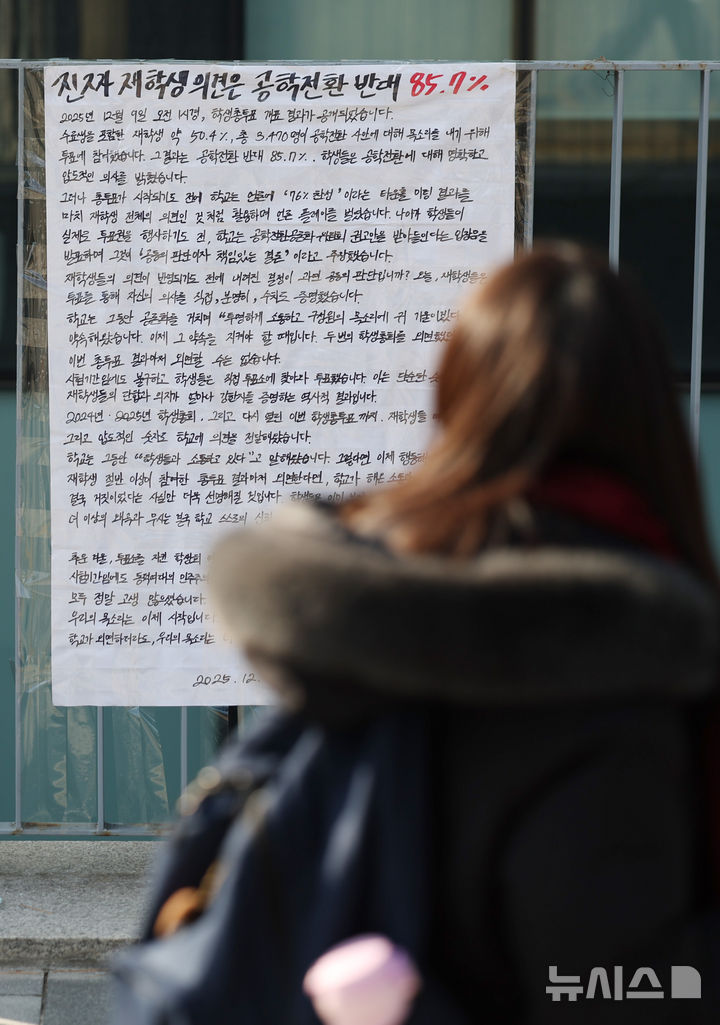 진짜 재학생 의견은 공학전환 반대 85.7%
2025년 12월 9일 오전 1시경, 학생총투표 개표 결과가 공개되었습니다.
수료생을 포함한 재학생 약 50.4%, 총 3,470명이 공학전환 사안에 대해 목소리를 내기 위해
투표에 참여했습니다. 그 결과는 공학전환 반대 85.7%. 학생들은 공학전환에 대해 명확하고
압도적인 의사를 밝혔습니다.
그러나 총투표가 시작되기도 전에 학교는 언론에 '76% 찬성'이라는 타운홀 미팅 결과를
마치 재학생 전체의 의견인 것처럼 활용하며 언론 플레이를 벌였습니다. 나아가 학생들이
실제로 투표권을 행사하기도 전, 학교는 공학전환공론화위원회 권고안을 받아들인다는 입장문을
발표하며 그것이 '공동의 판단이자 책임있는 결론'이라고 주장했습니다.
재학생들의 의견이 반영되기도 전에 내려진 결정이 과연 공동의 판단입니까? 오늘, 재학생들은
투표를 통해 자신의 의사를 직접, 분명히, 수치로 증명했습니다.
학교는 그동안 공론화를 거치며 "투명하게 소통하고 구성원의 목소리에 귀 기울이겠다
약속해왔습니다. 이제 그 약속을 지켜야 할 때입니다. 두 번의 학생총회를 외면했
이번 총투표 결과마저 외면할 수는 없습니다.
시험기간임에도 불구하고 학생들은 직접 투표소에 찾아와 투표했습니다. 이는 단순한
재학생들의 단합과 의지가 얼마나 강한지를 증명하는 역사적 결과입니다.
2024년·2025년 학생총회, 그리고 다시 열린 이번 학생총투표까지. 재학생들
그리고 압도적인 숫자로 학교에 의견을 전달해왔습니다.
학교는 그동안 "학생들과 소통하고 있다"고 말해왔습니다. 그렇다면 이제 행동
재학생 절반 이상이 참여한 총투표 결과마저 외면한다면, 학교가 해온 소통
결국 거짓이었다는 사실만 더욱 선명해질 것입니다. 학생들은 이미
더 이상의 왜곡과 무시는 결국 학교 스스로의
추운 겨울, 투표소를 지킨 학생회
시험기간임에도 동덕여대의 민주주
모두 정말 고생 많으셨습니다.
우리의 목소리는 이제 시작입니다
학교가 외면하더라도, 우리의 목소리는
2025.12.
뉴시스